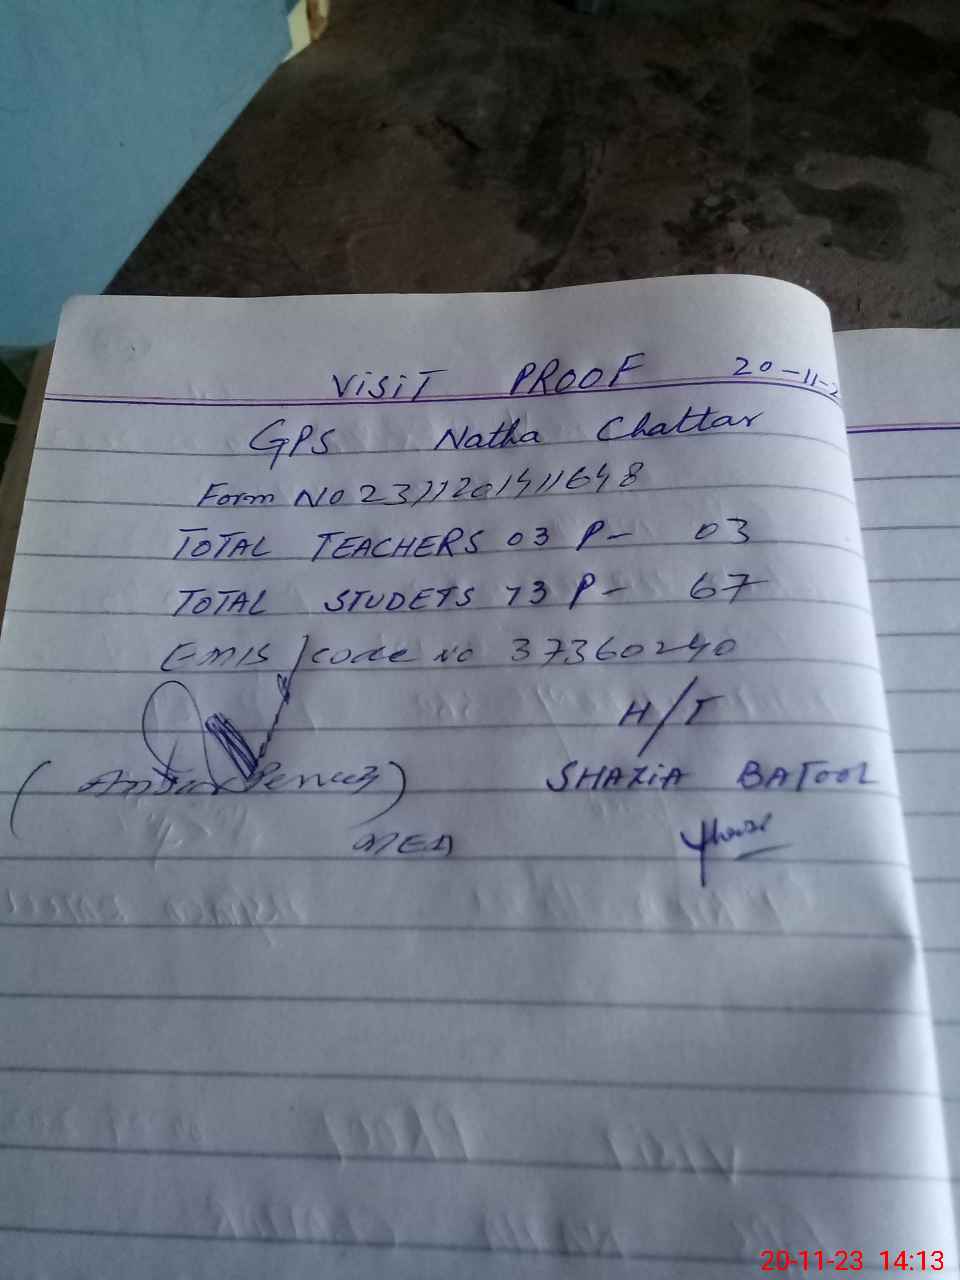 VISIT PROOF 20-11-2
GPS Natha Chattar
Form No 2311201411648
TOTAL TEACHERS 03 P- 03
TOTAL STUDETS 73 P- 67
EMIS/code no 37360240
H/T
SHAZIA BATOOL
MEA
20-11-23 14:13